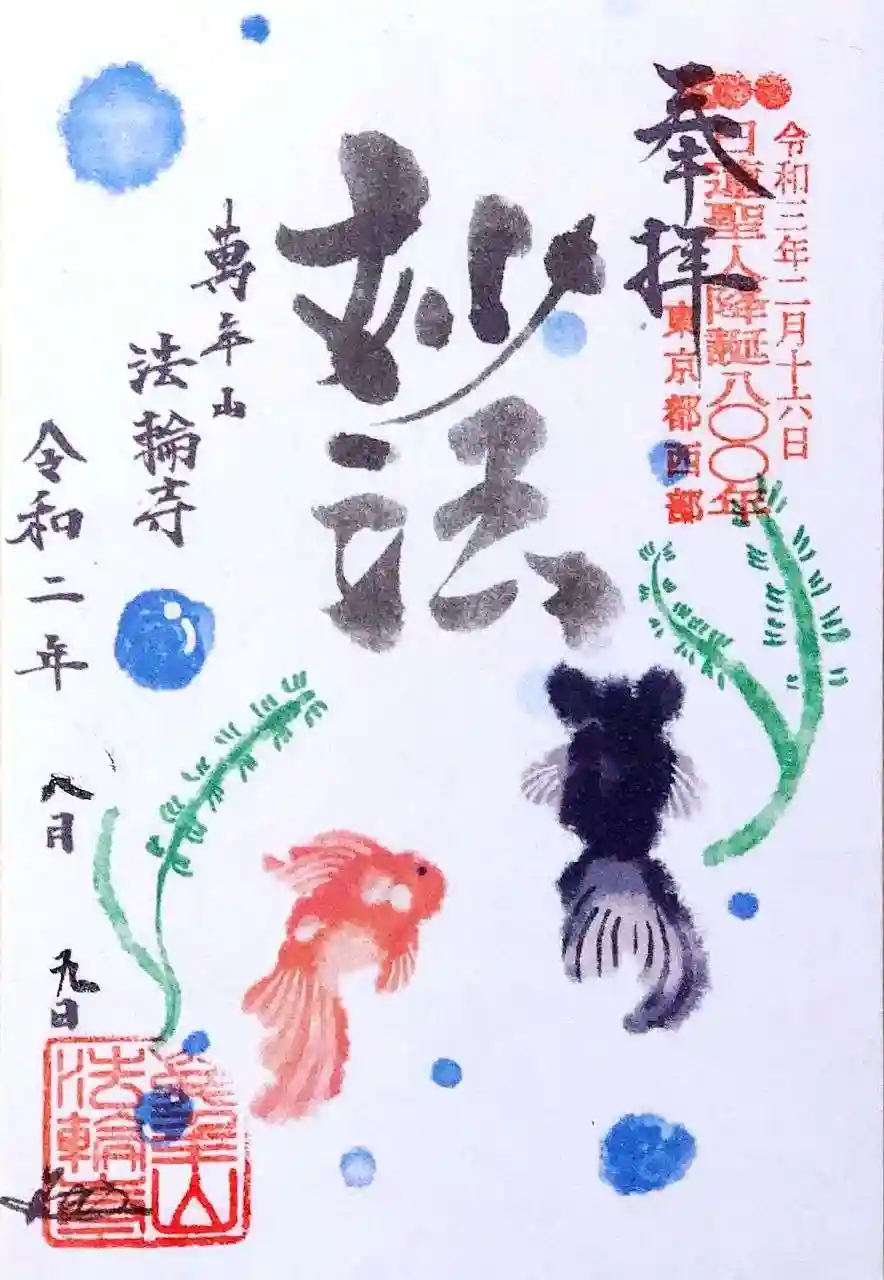 令和三年二月十六日
日蓮聖人降誕八〇〇年
東京都西部
奉拝
妙法
萬年山
法輪寺
令和二年
八月
九日
萬年山
法輪寺